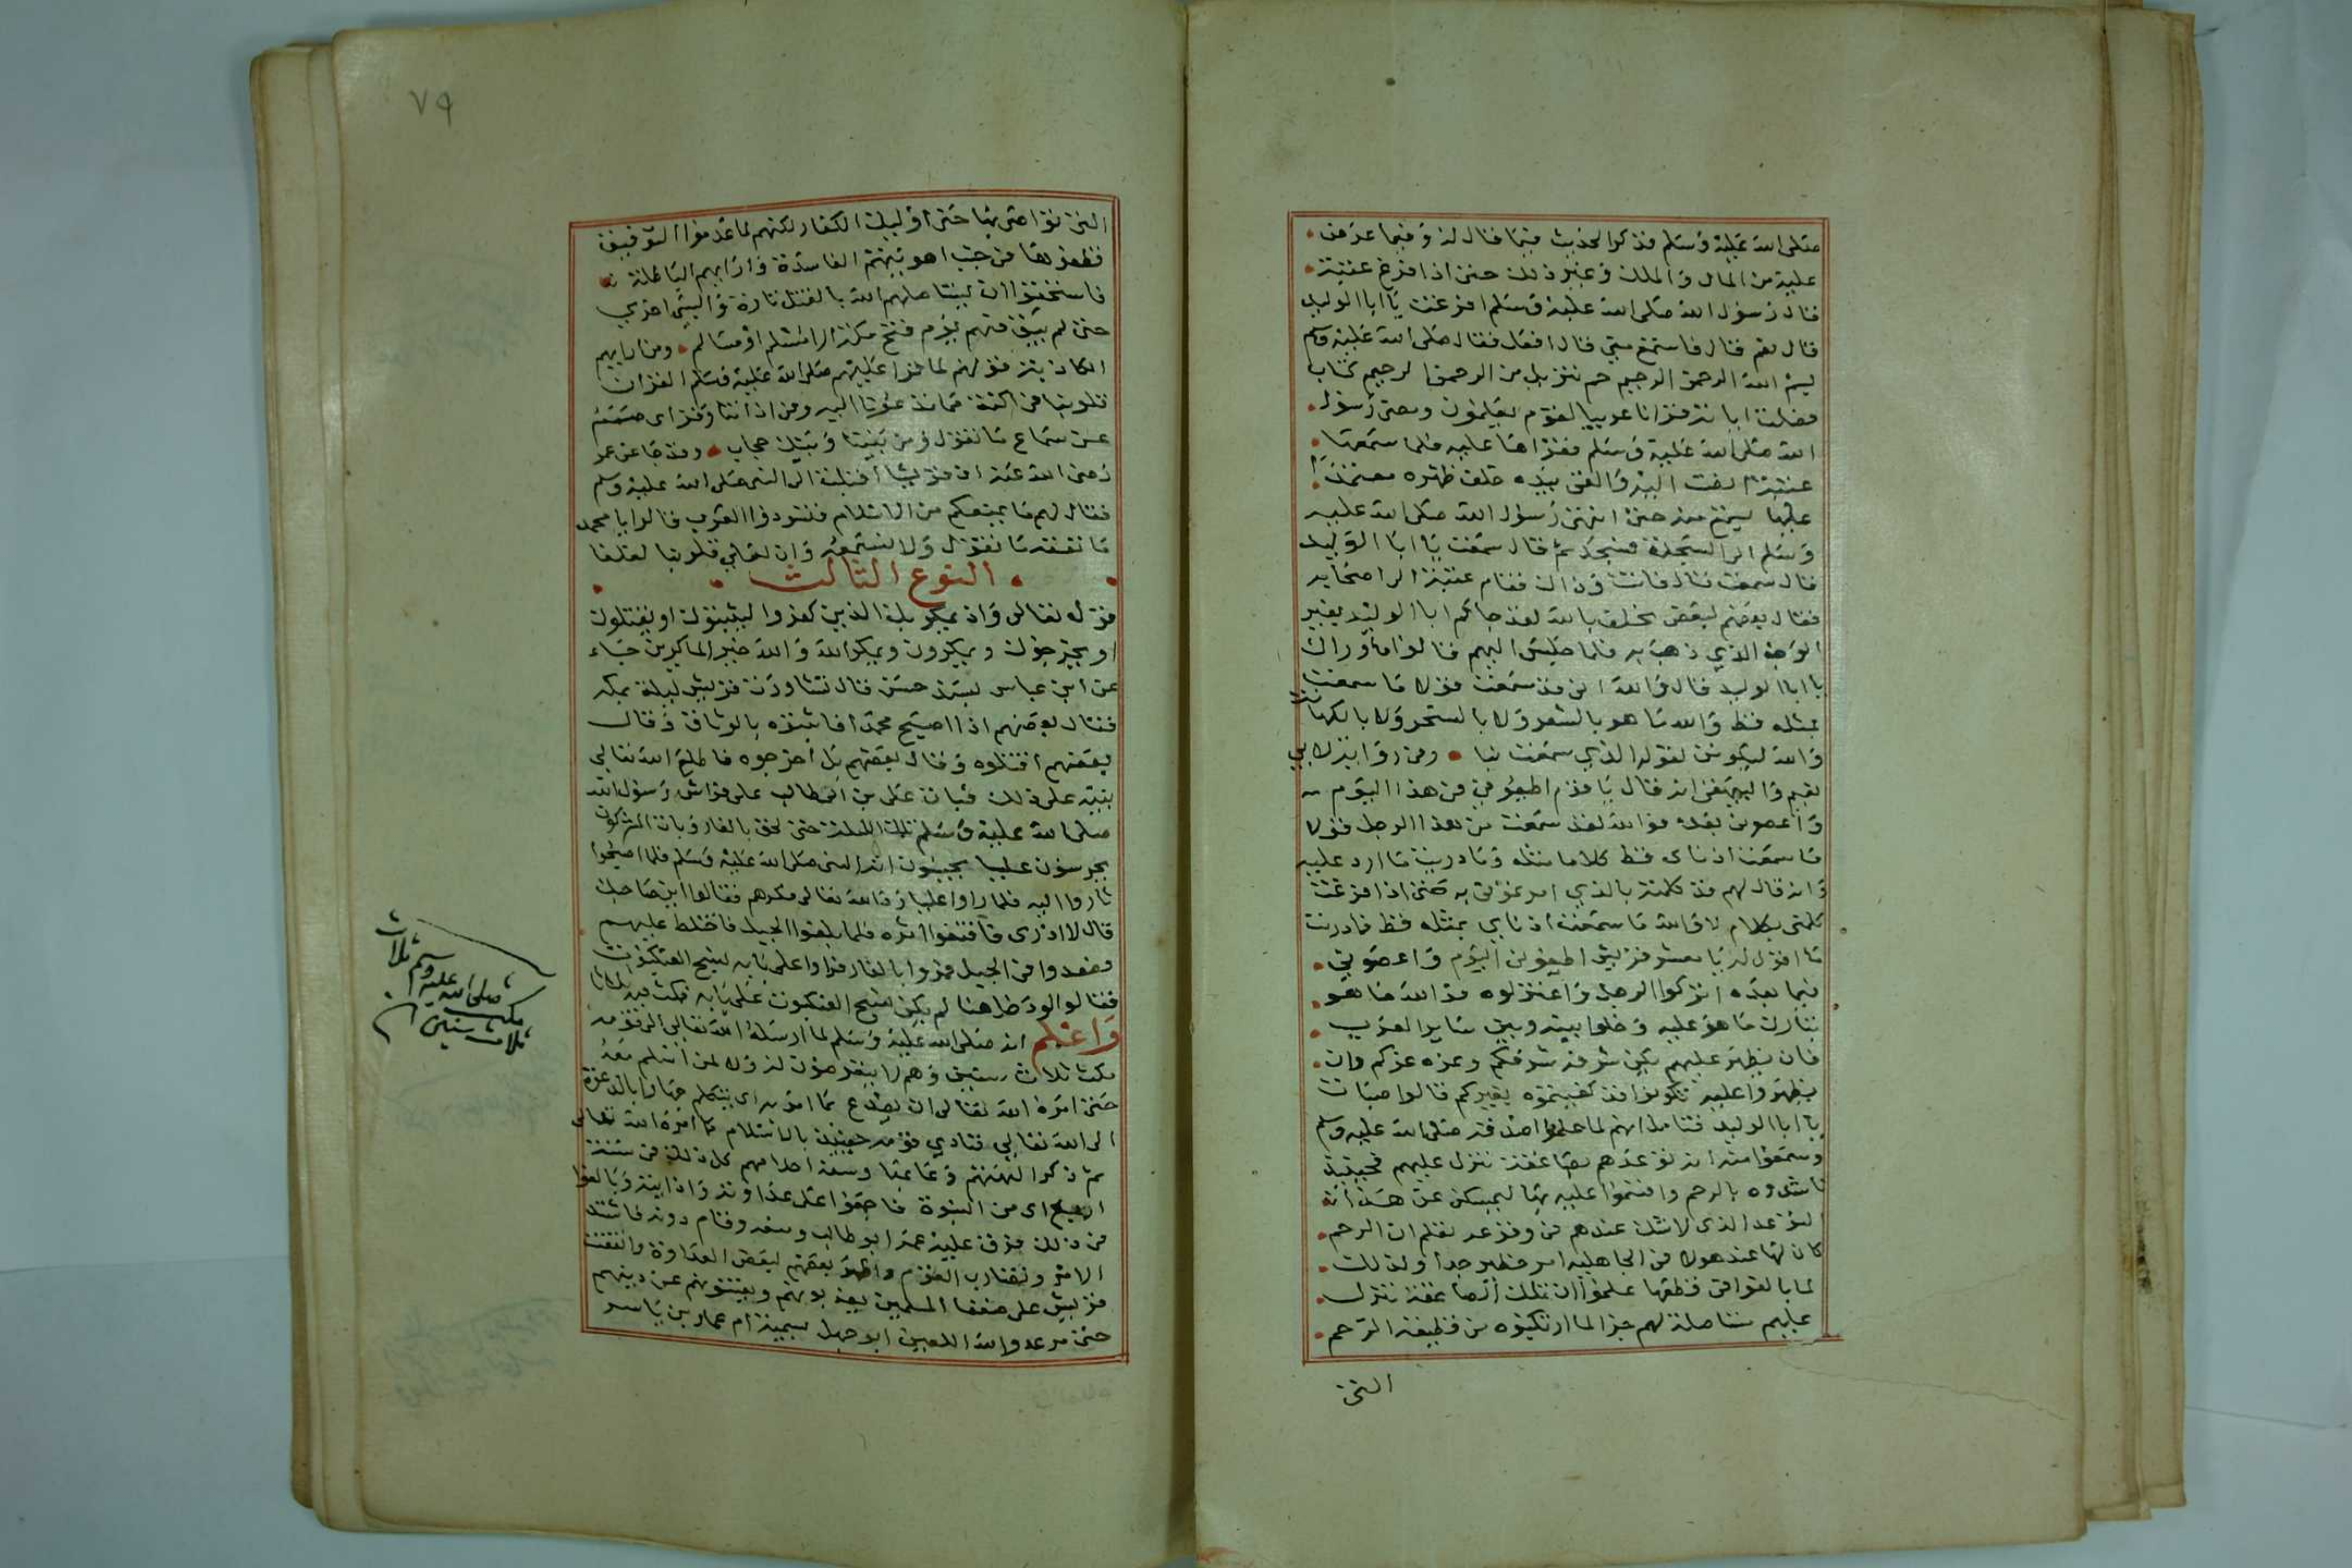 صلى الله عليه وسلم فذكر الحديث فيما قال له وفيما عرض
عليه من المال والملك وغير ذلك حتى اذا افرغ عتبة
قال رسول الله صلى الله عليه وسلم افرغت يا ابا الوليد
قال نعم قال فاستمع مني قال افعل فقال صلى الله عليه وسلم
بسم الله الرحمن الرحيم حم تنزيل من الرحمن الرحيم كتاب
فصلت اياته قرانا عربيا لقوم يعلمون ومضى رسول
الله صلى الله عليه وسلم فقراها عليه فلما سمعها
عتبة انصت اليه والقى بيده خلف ظهره معتمدا
عليها يسمع منه حتى انتهى رسول الله صلى الله عليه
وسلم الى السجدة فسجد ثم قال سمعت يا ابا الوليد
قال سمعت قال فانت وذاك فقام عتبة الى اصحابه
فقال بعضهم لبعض نحلف بالله لقد جاكم ابا الوليد بغير
الوجه الذي ذهب به فلما جلس اليهم قالوا ما وراك
يا ابا الوليد قال والله اني قد سمعت قولا ما سمعت
بمثله قط والله ما هو بالشعر ولا بالسحر ولا بالكهانة
والله ليكونن لقوله الذي سمعت نبا ومن رواية لابي
نعيم والبيهقي انه قال يا قوم اطيعوني من هذا اليوم
واعصوني بعده فوالله لقد سمعت من هذا الرجل قولا
ما سمعت اذناى قط كلاما مثله وما دريت ما ارد عليه
وانه قال لهم قد كلمته بالذي امرتموني به حتى اذا فرغت
كلمني بكلام لا والله ما سمعت اذناي بمثله قط فما دريت
ما اقول له يا معشر قريش اطيعوني اليوم واعصوني
فيما بعده اتركوا الرجل واعتزلوه فوالله ما هو
بتارك ما هو عليه وخلوا بينه وبين ساير العرب
فان يظهر عليهم يكن شرفه شرفكم وعزه عزكم وان
يظهروا عليه تكونوا قد كفيتموه بغيركم قالوا صبات
يا ابا الوليد فتامل انهم لما علموا صدقه صلى الله عليه وسلم
وسمعوا منه انه توعدهم بصاعقة تنزل عليهم فحينئذ
ناشدوه بالرحم واقسموا عليه بها ليمسكن عن هذا
التوعد الذى لا شك عندهم من وقوعه نعلم ان الرحم
كان لها عند هولا من الجاهلية امر خطير جدا ولذلك
لما بالغوا في قطعها علموا ان تلك الصاعقة تنزل
عليهم متاصلة لهم جزا لما ارتكبوه من قطيعة الرحم
التى
٧٩
التى تواصى بها حتى اوليك الكفار لكنهم لما عدموا التوفيق
قطعوها من جنب اهويتهم الفاسدة وارايهم الباطلة
فاستحقوا ان يستاصلهم الله بالقتل تارة والسبى اخري
حتى لم يبق منهم يوم فتح مكة الا مسلم او مسالم ومن
الكاذبة قولهم لما قرا عليهم صلى الله عليه وسلم القران
قلوبنا من اكنة مما تدعونا اليه ومن اذاننا وقر اى صمم
عن سماع ما تقول ومن بيننا وبينك حجاب وقد جا عن عمر
رضى الله عنه ان قريشا اقبلت الى النبى صلى الله عليه وسلم
فقال لهم ما يمنعكم من الاسلام فتسودوا العرب قالوا يا محمد
ما نفقه ما تقول ولا نسمعه وان على قلوبنا لغلفا
النوع الثالث
قوله تعالى واذ يمكر بك الذين كفروا ليثبتوك او يقتلوك
او يخرجوك ويمكرون ويمكر الله والله خير الماكرين جاء
عن ابن عباس بسند حسن قال تشاورت قريش ليلة بمكة
فقال بعضهم اذا اصبح محمد فاثبتوه بالوثاق وقال
بعضهم اقتلوه وقال بعضهم بل اخرجوه فاطلع الله تعالى
نبيه على ذلك فبات على بن ابى طالب على فراش رسول الله
صلى الله عليه وسلم تلك الليلة حتى لحق بالغار وبات المشركون
يحرسون عليا يحسبون انه النبى صلى الله عليه وسلم فلما اصبحوا
ثاروا اليه فلما راوا عليا رد الله تعالى مكرهم فقالوا اين صاحبك
قال لا ادرى فاقتفوا اثره فلما بلغوا الجبل فاختلط عليهم
فصعدوا من الجبل فمروا بالغار فراوا على بابه نسج العنكبوت
فقالوا لو دخل هنا لم يكن نسج العنكبوت على بابه فمكث فيه ثلاثا
واعلم انه صلى الله عليه وسلم لما ارسله الله تعالى الى قومه
مكث ثلاث سنين وهم لا يتعرضون له ولا لمن اسلم معه
حتى امره الله تعالى ان يصدع بما امر به اى يتكلم جهارا بالدعوة
الى الله تعالى فنادي قومه حينئذ بالاسلام كما امره الله تعالى
ثم ذكر الهتهم وعابها وسفه احلامهم كل ذلك من سنة
اربع اى من النبوة فاجمعوا على عداوته واذايته وبالغوا
من ذلك فرق عليه عمه ابو طالب ومنعه وقام دونه فاشتد
الامر وتضارب القوم واظهر بعضهم لبعض العداوة واتفقت
قريش على ضعفا المسلمين يعذبونهم ويفتنونهم عن دينهم
حتى مر عدو الله اللعين ابو جهل بسمية ام عمار بن ياسر
صلى الله عليه وسلم ثلاث
مكث
ثلاث سنين